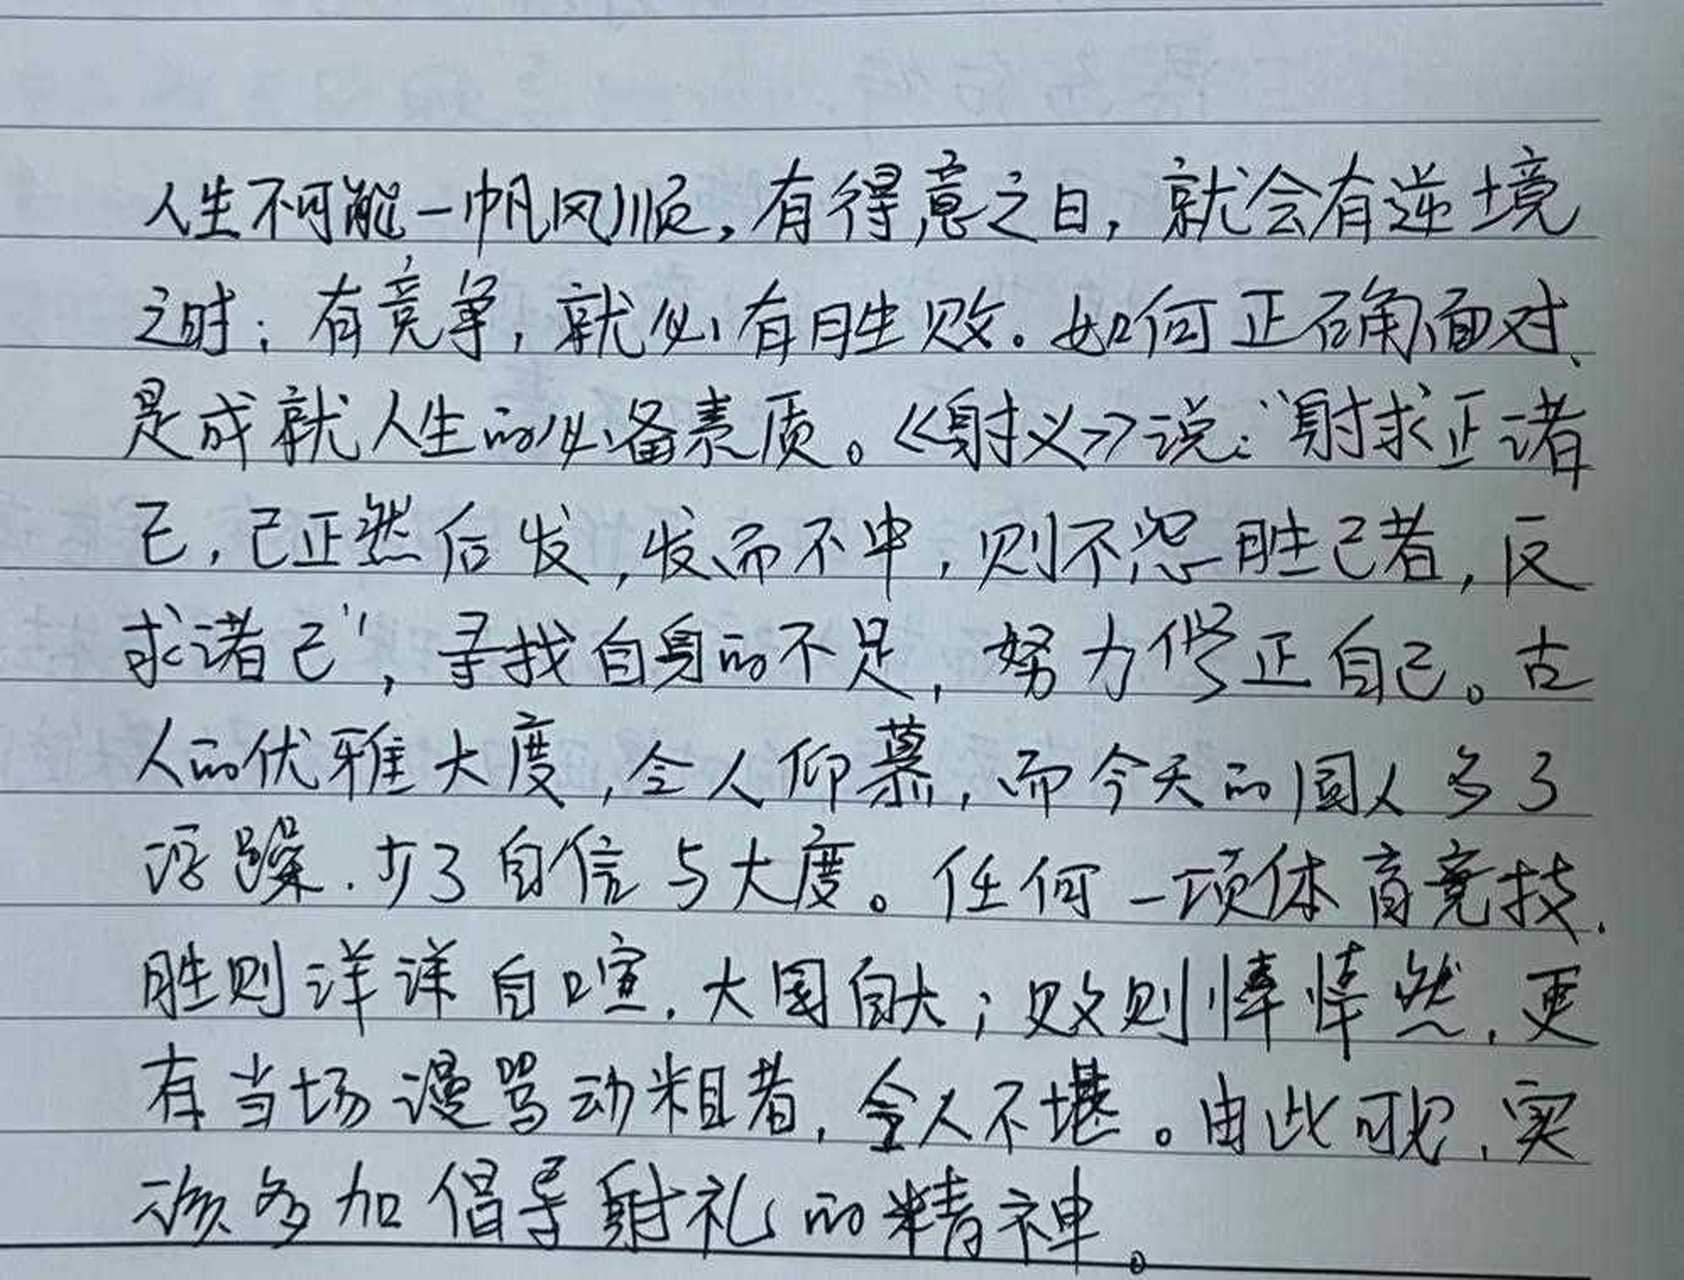 人生不可能一帆风顺，有得意之日，就会有逆境
之时；有竞争，就必有胜败。如何正确面对，
是成就人生的必备素质。《射义》说：“射求正诸
己，己正然后发，发而不中，则不怨胜己者，反
求诸己”，寻找自身的不足，努力修正自己。古
人的优雅大度，令人仰慕，而今天的国人多了
浮躁，少了自信与大度。任何一项体育竞技，
胜则洋洋自喧，大国自大；败则悻悻然，更
有当场谩骂动粗者，令人不堪。由此可见，实
该多加倡导射礼的精神。